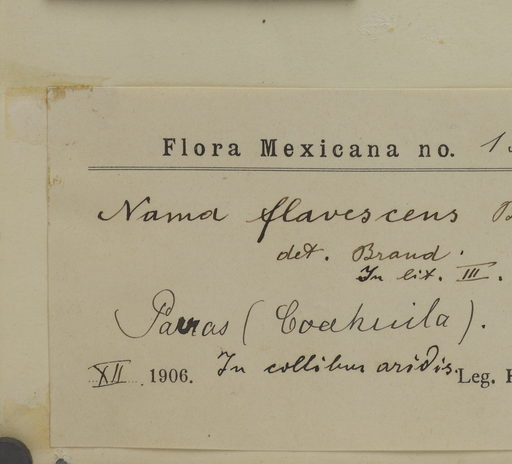 Flora Mexicana no. 1
Nama flavescens B
det. Brand.
In lit. III.
Parras (Coahuila).
XII. 1906. In collibus aridis. Leg.